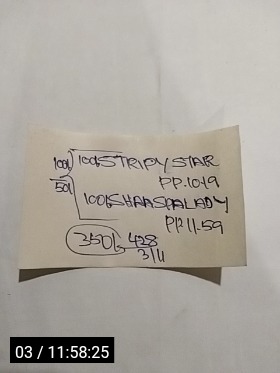 100/- 100/- STRIPY STAR
PP.10.19
50/- 100/- SHAASPALADY
PP.11.59
350/- 428
3/11
03 / 11:58:25